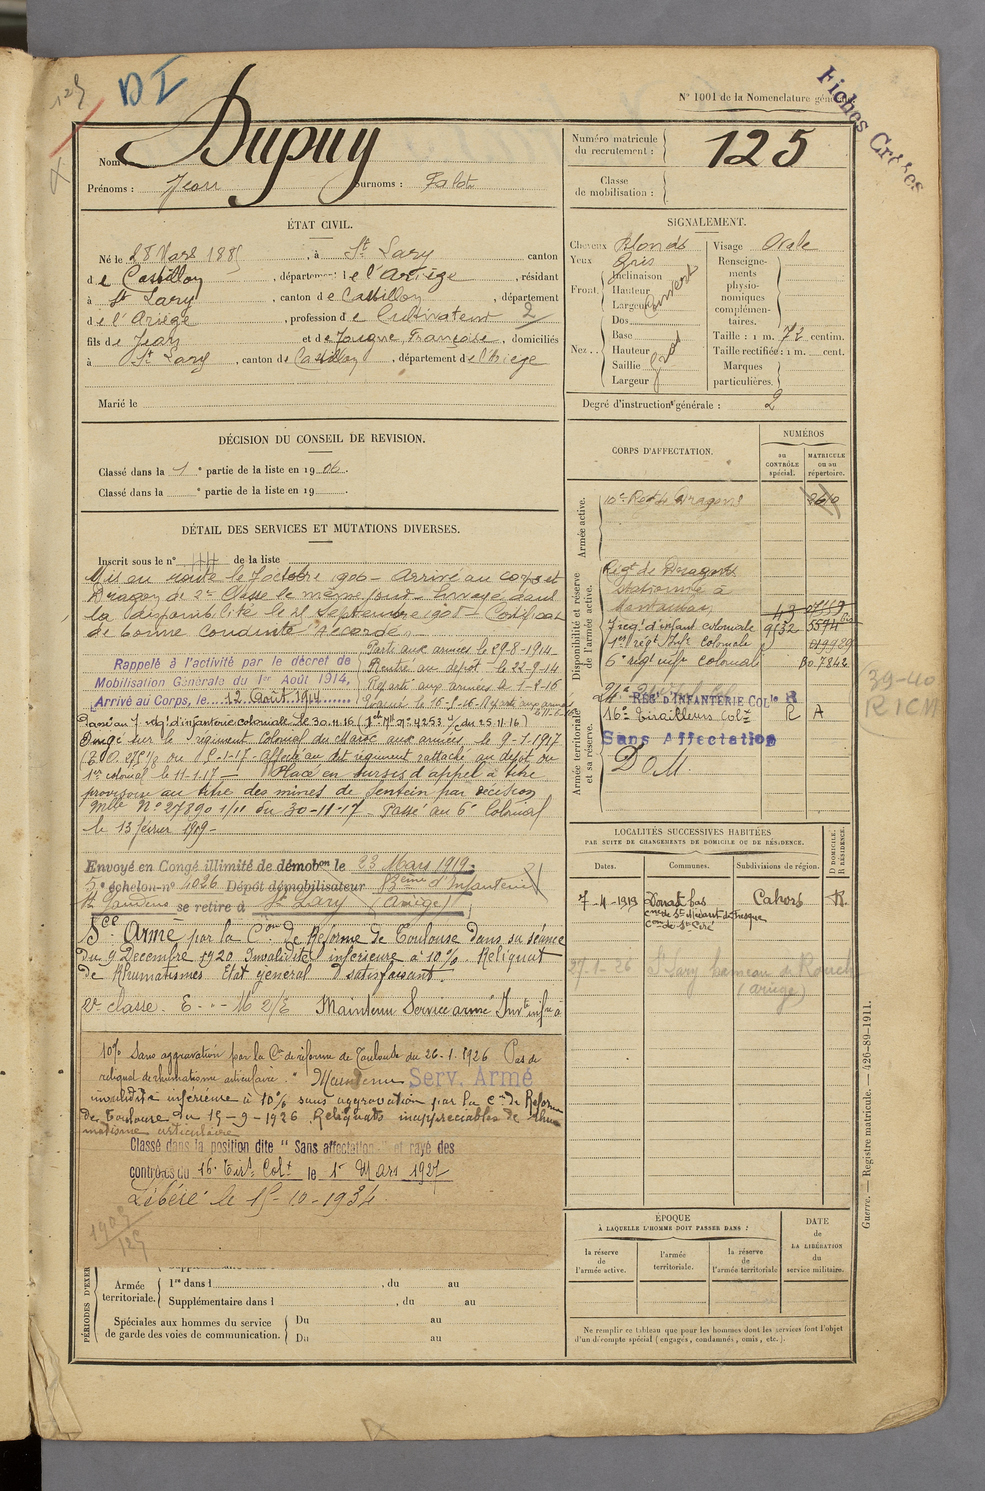 125
D I
N° 1001 de la Nomenclature géné
Fiches Créées
Nom : Dupuy
Prénoms : Jean Surnoms : Palot
Numéro matricule du recrutement : 125
Classe de mobilisation :
ÉTAT CIVIL.
Né le 28 Mars 1885, à St Lary canton
de Castillon, département de l'Ariège, résidant
à St Lary, canton de Castillon, département
de l'Ariège, profession de Cultivateur 2
fils de Jean et de Fougne, Françoise, domiciliés
à St Lary, canton de Castillon, département de l'Ariège
Marié le
SIGNALEMENT.
Cheveux Blonds
Yeux Gris
Front. Inclinaison
Hauteur
Largeur
couvert
Nez.. Dos
Base
Hauteur
Saillie
Largeur
gros
Visage Ovale
Renseignements physionomiques complémentaires.
Taille : 1 m. 72 centim.
Taille rectifiée : 1 m. cent.
Marques particulières.
Degré d'instruction générale : 2
DÉCISION DU CONSEIL DE REVISION.
Classé dans la 1e partie de la liste en 1906.
Classé dans la e partie de la liste en 19
DÉTAIL DES SERVICES ET MUTATIONS DIVERSES.
Inscrit sous le n° de la liste
Mis en route le 7 octobre 1906 – Arrivé au corps et
Dragon de 2e Classe le même jour – Envoyé dans
la disponibilité le 25 Septembre 1908 – Certificat
de bonne conduite accordé.
Rappelé à l'activité par le décret de
Mobilisation Générale du 1er Août 1914,
Arrivé au Corps, le 12 Août 1914
Parti aux armées le 29-8-1914
Rentré au dépôt le 22-9-14
Reparti aux armées le 1-8-16
Passé au 7 régt d'infanterie coloniale le 30.11.16 (Don Mle n° 4253 7/ du 25.11.16)
Dirigé sur le régiment Colonial du Maroc aux armées le 9-1-1917
affecté au dit régiment rattaché au dépôt du
1er colonial le 11-1-17 – Placé en sursis d'appel à titre
provisoire au titre des mines de Sentein par décision
Mlle N° 27890 1/11 du 30-11-17 – Passé au 6e Colonial
le 13 février 1919 –
Envoyé en Congé illimité de démobon le 23 Mars 1919.
5e échelon n° 4026 Dépôt démobilisateur 83ème d'Infanterie
St Gaudens se retire à St Lary (Ariège)
Sce Armé par la Con de Réforme de Toulouse dans sa séance
du 9 Décembre 1920 Invalidité inférieure à 10% Reliquat
de Rhumatismes Etat général satisfaisant.
Maintenu Service armé Invté infre à
10% sans aggravation par la Con de réforme de Toulouse du 26-1-1926 Pas de
reliquat de rhumatisme articulaire." Maintenu Serv. Armé
invalidité inférieure à 10% sans aggravation par la Con de Réforme
de Toulouse du 15-9-1926 Reliquats inappréciables de rhu
matisme articulaire
Classé dans la position dite "Sans affectation" et rayé des
contrôles du 16e Tirs Colx le 1er Mars 1927
Libéré le 15-10-1934
1905
125
CORPS D'AFFECTATION.
NUMÉROS
au CONTRÔLE spécial.
MATRICULE ou au répertoire.
Armée active.
10e Régt de Dragons 2610
Disponibilité et réserve de l'armée active.
Régt de Dragons
Stationné à
Montauban
7 régt d'infant coloniale 9132 5594
1er régt Infie Coloniale
6e régt infie coloniale 7842
Armée territoriale et sa réserve.
21e REGt D'INFANTERIE COLle R
16e Tirailleurs Colx R A
Sans Affectation
DOM.
39-40
RICM
LOCALITÉS SUCCESSIVES HABITÉES
PAR SUITE DE CHANGEMENTS DE DOMICILE OU DE RÉSIDENCE.
Dates. Communes. Subdivisions de région. D DOMICILE. R RÉSIDENCE.
7-4-1919 Cahors R.
cne de St Médard de Presque
Con de St Céré
27-1-26 St Lary hameau de Rouch
(Ariège)
ÉPOQUE
À LAQUELLE L'HOMME DOIT PASSER DANS :
la réserve de l'armée active.
l'armée territoriale.
la réserve de l'armée territoriale
DATE de LA LIBÉRATION du service militaire.
Ne remplir ce tableau que pour les hommes dont les services font l'objet
d'un décompte spécial (engagés, condamnés, omis, etc.).
PÉRIODES D'EXER
Armée territoriale.
1re dans l , du au
Supplémentaire dans l , du au
Spéciales aux hommes du service
de garde des voies de communication.
Du au
Du au
Guerre. — Registre matricule. — 426-89-1911.